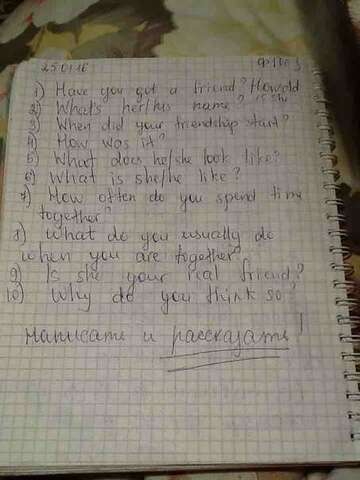 25.01.16
1) Have you got a friend? How old
2) What's her/his name? is she
3) When did your friendship start?
4) How was it?
5) What does he/she look like?
6) What is she/he like?
7) How often do you spend time
together?
8) What do you usually do
when you are together?
9) Is she your real friend?
10) Why do you think so?
Написать и рассказать!